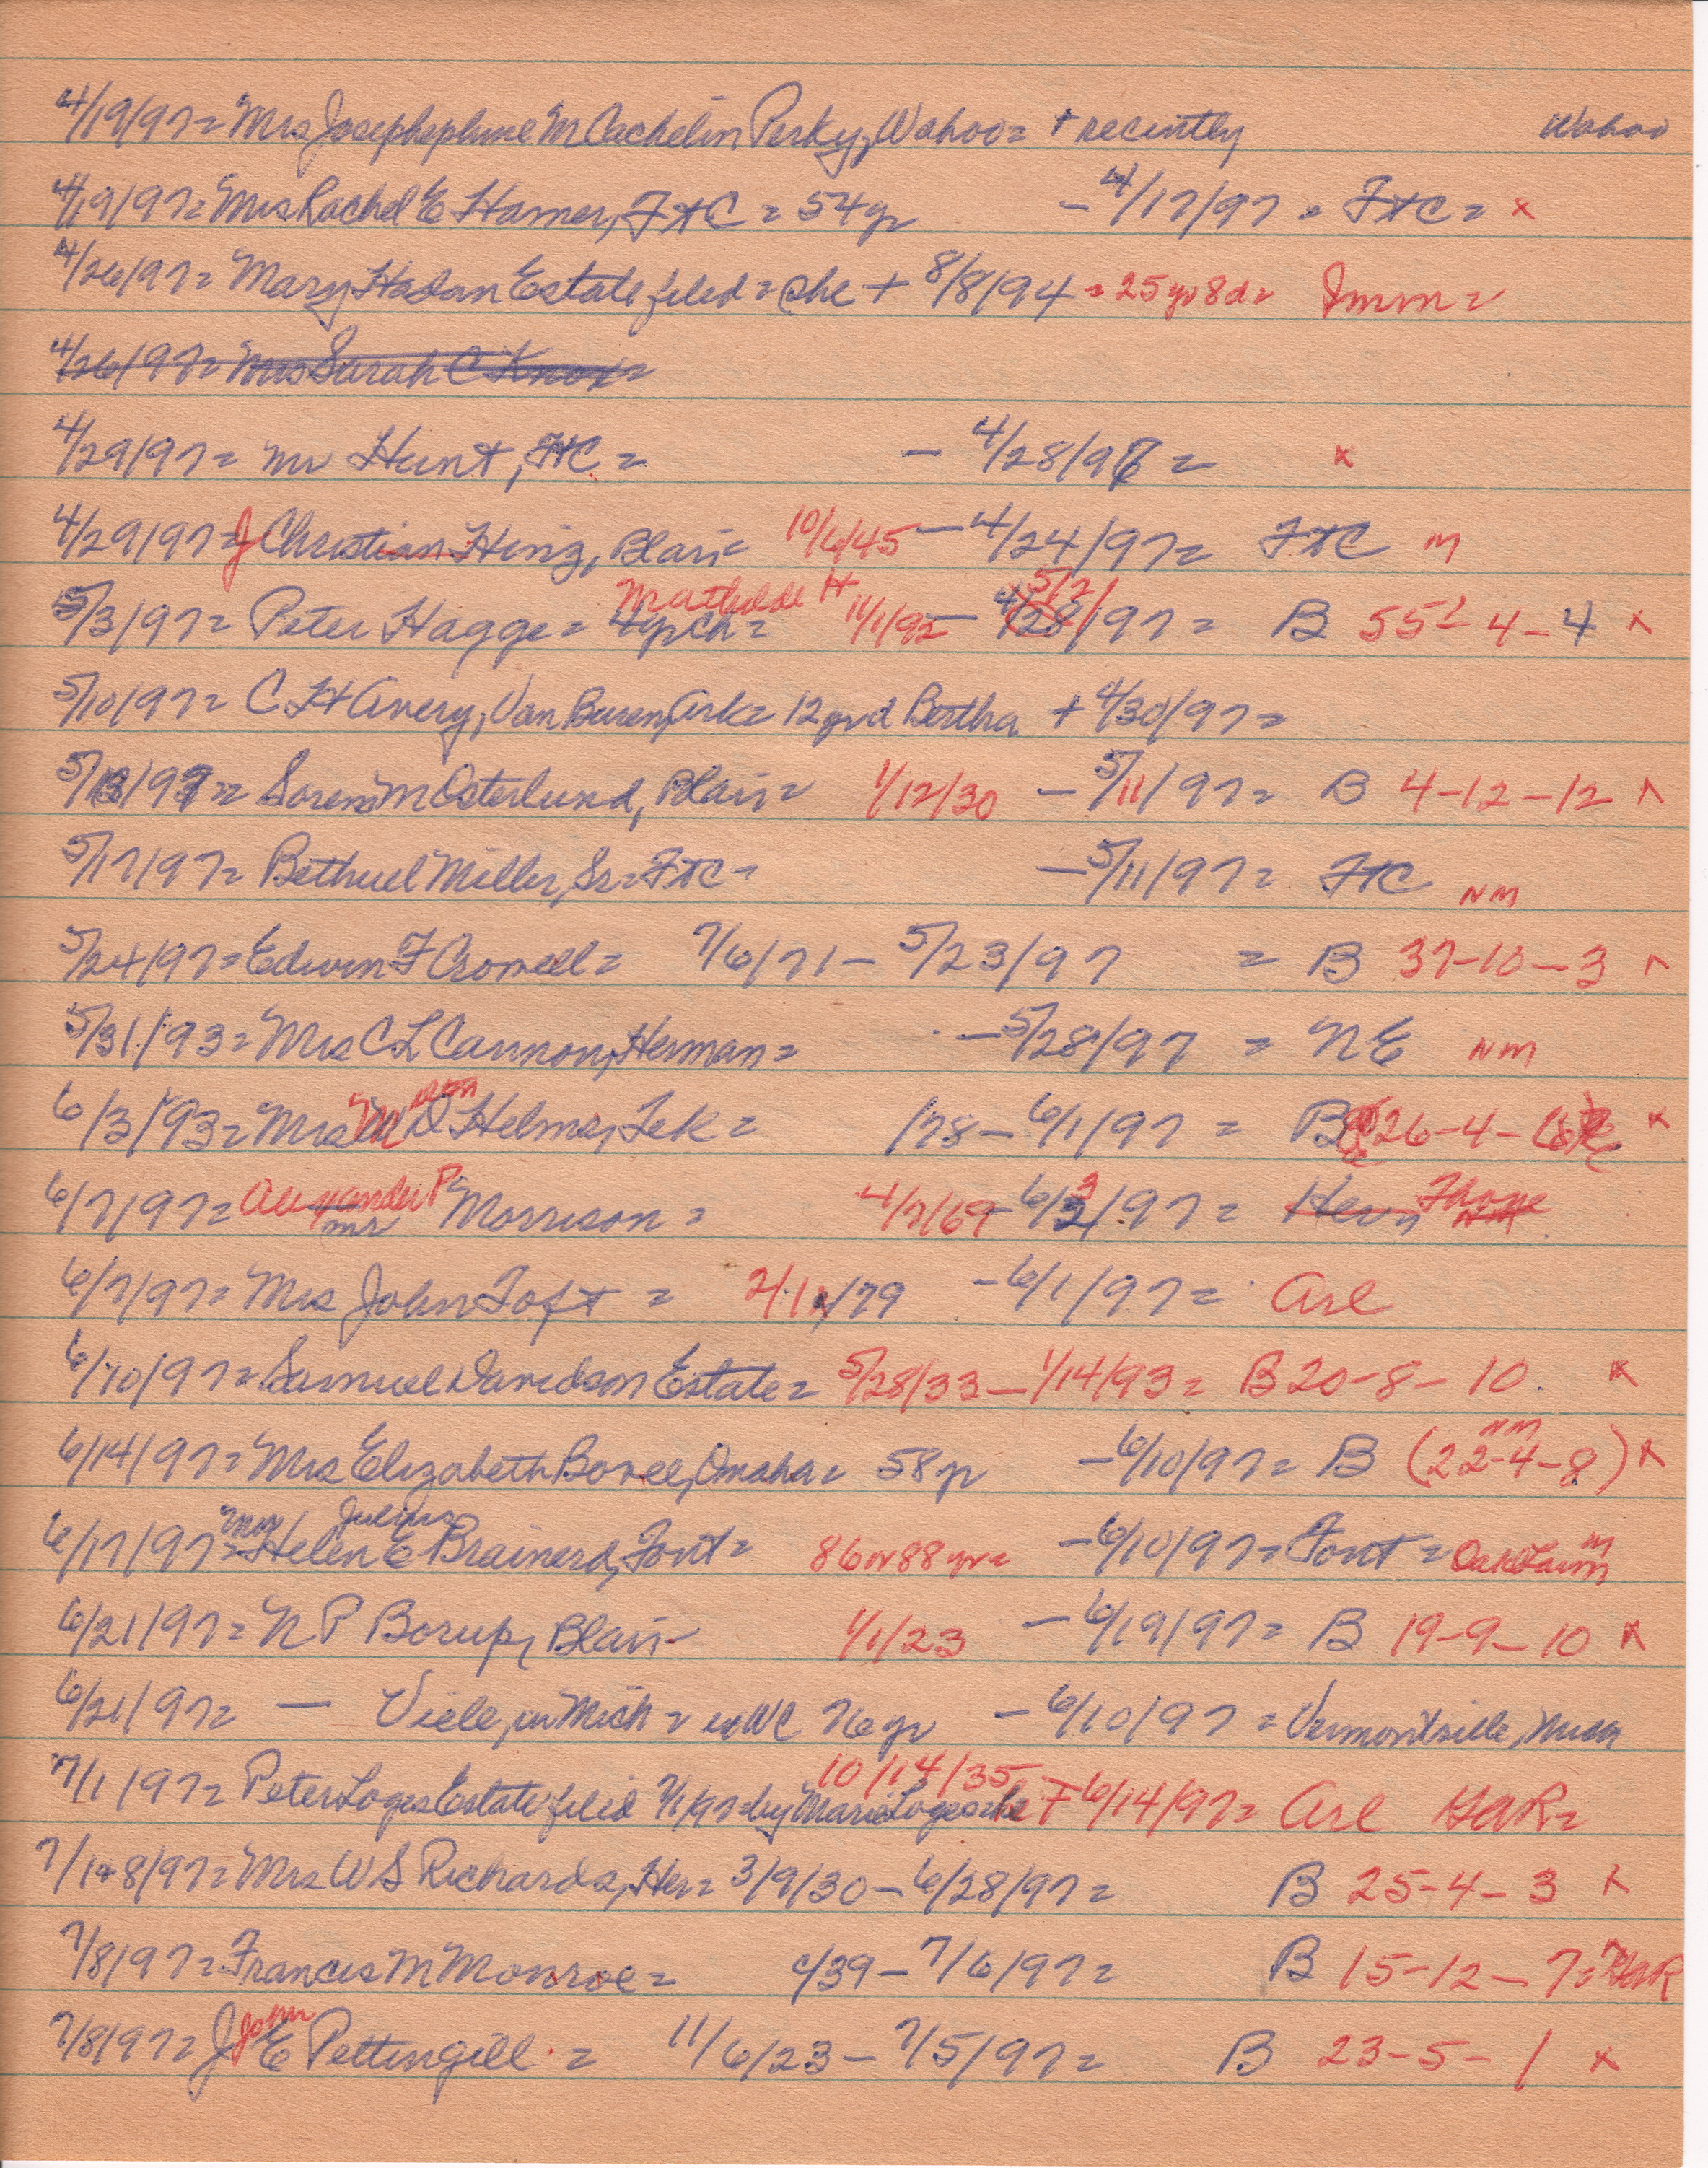 4/19/97= Mrs Josephephine McCachelin Perky, Wahoo= + recently Wahoo
4/19/97= Mrs Rachel E Hamer, FtC = 54yr - 4/17/97 = FtC = x
4/26/97= Mary Hadan Estate filed = she + 8/8/94 = 25yr 8d= Imm=
4/26/97= Mrs Sarah C Knox=
4/29/97= Mr Hunt, FtC = - 4/28/97 = x
4/29/97= J Christian Hinz, Blair= 10/6/45 - 4/24/97= FtC M
5/3/97= Peter Hagge= 4yr ch= Mathilde H 11/1/92 - 4/28/97 5/2/ = B 55 - 4 - 4 x
5/10/97= C H Avery, Van Buren, Ark= 12yr d Bertha + 4/30/97=
5/13/97= Soren M Osterlund, Blair= 1/12/30 - 5/11/97= B 4-12-12 x
5/17/97= Bethuel Miller, Sr= FtC= - 5/11/97= FtC NM
5/24/97= Edwin F Crowell= 7/6/71 - 5/23/97 = B 37-10-3 x
5/31/93= Mrs C L Cannon, Herman= - 5/28/97 = NE NM
6/3/93= Mrs D Helms, Tek= /78 - 6/1/97 = B 26-4- x
6/7/97= Alexander P Mr Morrison = 4/7/69 - 6/3/97 = Her
6/7/97= Mrs John Toft = 2/1/79 - 6/1/97= Arl
6/10/97= Samuel Davidson Estate= 5/28/33 - 1/14/93= B 20-8-10. x
6/14/97= Mrs Elizabeth Bovee, Omaha= 58yr - 6/10/97= B (22-4-8) NM x
6/17/97= Mrs Helen E Julius Brainerd, Font= 86 or 88 yr= - 6/10/97= Font = Oak Lawn M
6/21/97= N P Borup, Blair- 1/1/23 - 6/19/97= B 19-9-10 x
6/21/97= - Viele, in Mich = exWC 76yr - 6/10/97 = Vermontville, Mich
7/1/97= Peter Loges Estate filed 7/1/97 by Marie Loges= he 10/14/35 + 6/14/97= Arl GAR=
7/1+8/97= Mrs W S Richards, Her= 3/9/30 - 6/28/97= B 25-4-3 x
7/8/97= Francis M Monroe= c/39 - 7/6/97= B 15-12-7= GAR
7/8/97= J John E Pettengill = 11/6/23 - 7/5/97= B 23-5-1 x